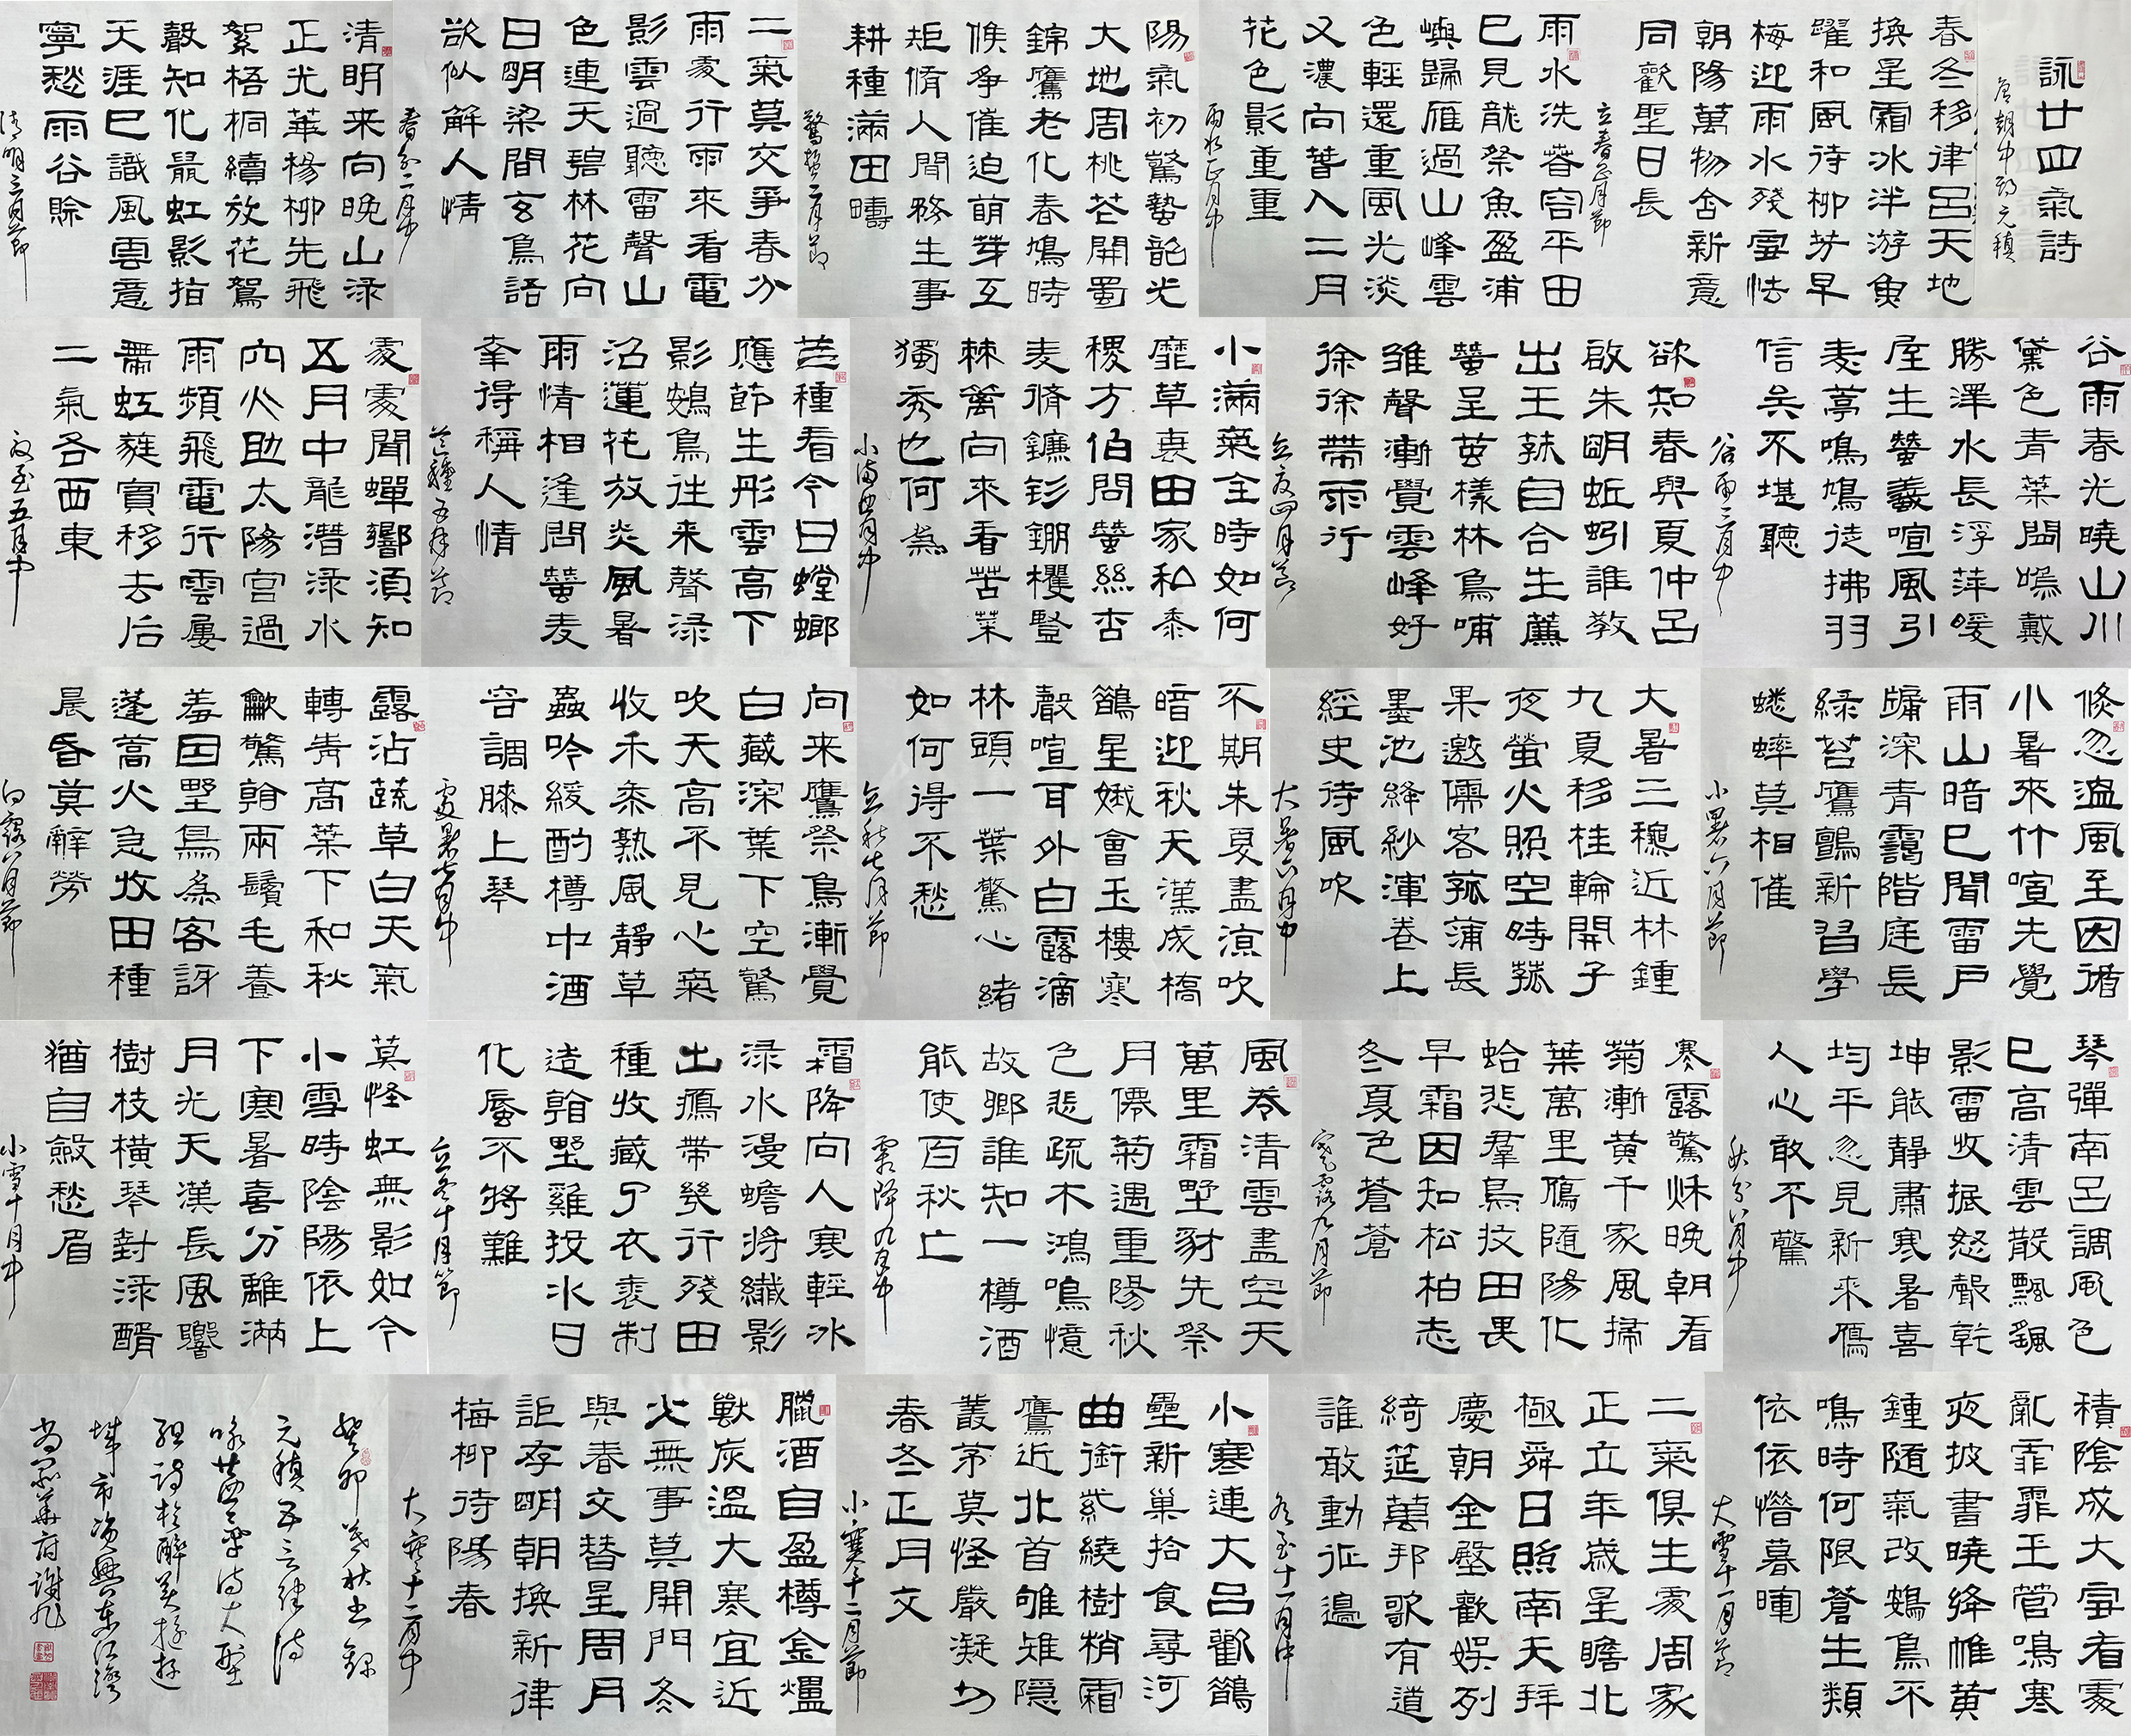 詠廿四氣詩
唐朝中期元稹
春冬移律呂天地
換星霜冰泮游魚
躍和風待柳芳早
梅迎雨水殘雪怯
朝陽萬物含新意
同歡聖日長
立春正月節
雨水洗春容平田
已見龍祭魚盈浦
嶼歸雁過山峰雲
色輕還重風光淡
又濃向春入二月
花色影重重
雨水正月中
陽氣初驚蟄韶光
大地周桃花開蜀
錦鷹老化春鳩時
候爭催迫萌芽互
矩脩人間務生事
耕種滿田疇
驚蟄二月節
二氣莫交爭春分
雨處行雨來看電
影雲過聽雷聲山
色連天碧林花向
日明梁間玄鳥語
欲似解人情
春分二月中
清明来向晚山淥
正光華楊柳先飛
絮梧桐續放花鴛
聲知化鼠虹影指
天涯已識風雲意
寧愁雨谷賒
清明三月節
谷雨春光曉山川
黛色青葉間鳴戴
勝澤水長浮萍暖
屋生蠶蟻喧風引
麦葶鳴鳩徒拂羽
信矣不堪聽
谷雨三月中
欲知春與夏仲呂
啟朱明蚯蚓誰教
出王菝自合生薦
蠶呈茧樣林鳥哺
雏聲漸覺雲峰好
徐徐帶雨行
立夏四月節
小滿氣全時如何
靡草衰田家私黍
稷方伯問蠶絲杏
麦脩鐮釤錋欔豎
棘籬向來看苦菜
獨秀也何為
小滿四月中
芒種看今日螳螂
應節生彤雲高下
影鴳鳥往来聲淥
沼蓮花放炎風暑
雨情相逢問蠶麦
幸得稱人情
芒種五月節
處處聞蟬響須知
五月中龍潛淥水
穴火助太陽宮過
雨頻飛電行雲屢
帶虹蕤賓移去后
二氣各西東
夏至五月中
倏忽溫風至因循
小暑來竹喧先覺
雨山暗已聞雷户
牖深青靄階庭長
綠苔鷹鸇新習學
蟋蟀莫相催
小暑六月節
大暑三秋近林鍾
九夏移桂輪開子
夜螢火照空時菰
果邀儒客菰蒲長
墨池絳紗渾卷上
經史待風吹
大暑六月中
不期朱夏盡涼吹
暗迎秋天漢成橋
鵲星娥會玉樓寒
聲喧耳外白露滴
林頭一葉驚心緒
如何得不愁
立秋七月節
向来鷹祭鳥漸覺
白藏深葉下空驚
吹天高不見心氣
收禾黍熟風静草
蟲吟緩酌樽中酒
容調膝上琴
處暑七月中
露沾蔬草白天氣
轉青高葉下和秋
歗驚翰兩鬢毛養
羞因野鳥為客訝
蓬蒿火急收田種
晨昏莫辭勞
白露八月節
琴彈南呂調風色
已高清雲散飄颻
影雷收振怒聲乾
坤能静肅寒暑喜
均平忽見新来雁
人心敢不驚
秋分八月中
寒露驚秋晚朝看
菊漸黄千家風掃
葉萬里雁隨陽化
蛤悲羣鳥收田畏
早霜因知松柏志
冬夏色蒼蒼
寒露九月節
風卷清雲盡空天
萬里霜野豺先祭
月僊菊遇重陽秋
色悲疏木鴻鳴憶
故鄉誰知一樽酒
能使百秋亡
霜降九月中
霜降向人寒輕冰
淥水漫蟾將纖影
出鴈帶幾行殘田
種收藏了衣裘制
造翰野雞投水日
化蜃不將難
立冬十月節
莫怪虹無影如今
小雪時陰陽依上
下寒暑喜分離滿
月光天漢長風響
樹枝橫琴對淥醑
猶自斂愁眉
小雪十月中
積陰成大雪看處
亂霏霏玉管鳴寒
夜披書曉絳帷黄
鍾隨氣改鴳鳥不
鳴時何限蒼生類
依依惜暮暉
大雪十一月節
二氣俱生處周家
正立年歲星瞻北
極舜日照南天拜
慶朝金殿歡娛列
綺筵萬邦歌有道
誰敢動征邊
冬至十一月中
小寒連大呂歡鵲
壘新巢拾食尋河
曲銜紫繞樹梢霜
鷹近北首雊雉隱
叢茅莫怪嚴凝切
春冬正月交
小寒十二月節
臘酒自盈樽金爐
獸炭溫大寒宜近
火無事莫開門冬
與春交替星周月
詎存明朝換新律
梅柳待陽春
大寒十二月中
癸卯茂秋书錄
元稹五言律诗
咏廿四氣诗大型
組詩於醉美
城市資興東江灣